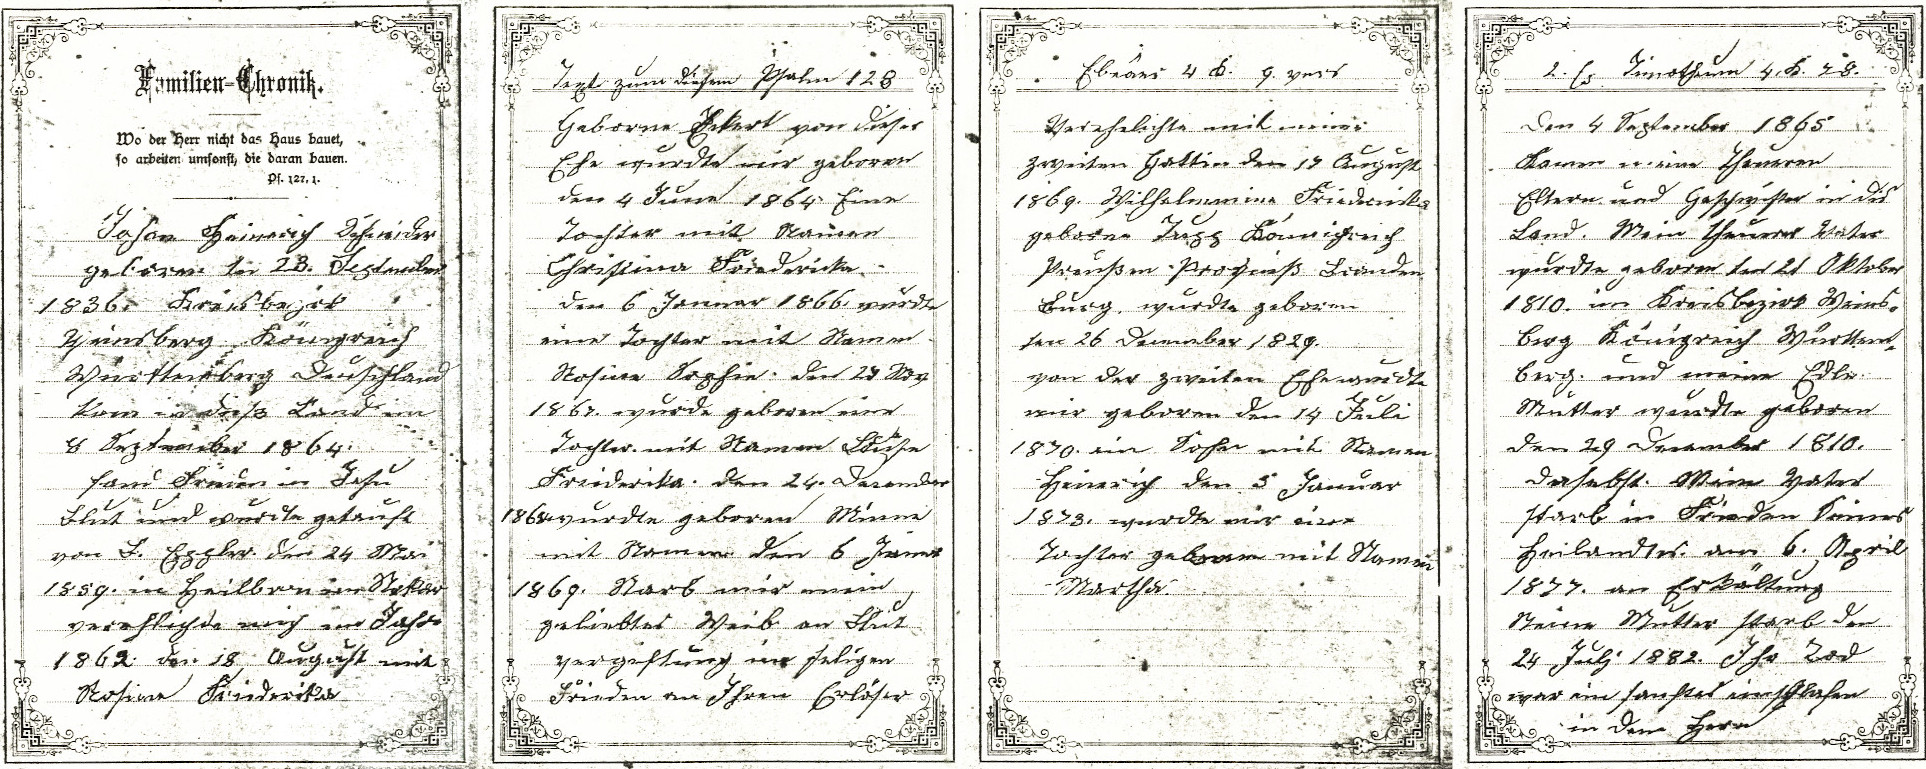 Familien-Chronik.
Wo der Herr nicht das Haus bauet,
so arbeiten umsonst, die daran bauen.
Ps. 127, 1.
Johan Heinrich Schneider
geboren den 23. September
1836. Kreisbezirk
Weinsberg Königreich
Württemberg Deutschland
kam in dieses Land im
8 September 1864.
fand Frieden in Jesu
Blut und wurde getauft
von L. Eppler den 24 Mai
1859. in Heilbron im Nekar
verehlichde mich im Jahr
1862 den 18 August mit
Rosine Friederika
Text zum diesem Psalm 128
Geborne Eckert von dieser
Ehe wurdte mir geboren
den 4 June 1864 Eine
Tochter mit Namen
Christina Friedericke.
den 6 Januar 1866 wurdte
eine Tochter mit Namen
Rosine Sophie. den 28 Nov
1867. wurde geboren eine
Tochter mit Namen Louise
Friederika. den 24. Dezember
1868 wurdte geboren Minne
mit Namen den 6 Januar
1869. Starb mir mein
geliebtes Weib an Blut
vergiftung im seligen
Frieden an Ihren Erlöser
Ebräer 4 K. 9. vers
Verehelichte mit meiner
zweiten Gattin den 17 August
1869. Wilhelmmine Friedericka
geborne Trepp Königreich
Preußen Provinß Branden
burg. wurdte geboren
den 26 Dezember 1829.
von der zweiten Ehe wurdte
mir geboren den 14 Juli
1870. ein Sohn mit Namen
Heinrich den 5 Januar
1873. wurdte mir eine
Tochter geboren mit Namen
Martha
2. Ep Timotheum 4. K. 7 8.
Den 4 September 1865
kamen meine Theueren
Eltern und Geschwister in das
Land. Mein theurer Vater
wurdte geboren den 21 Oktober
1810. im Kreisbezirk Weins-
berg Königreich Württem-
berg. und meine Edle
Mutter wurdte geboren
den 29 Dezember 1810.
daselbst. Mein Vater
starb im Frieden Seines
Heilandtes. am 6. April
1877. an Erkältung
Meine Mutter starb den
24 Julj 1882. Ihr Tod
war ein sanftes einschlafen
in dem Herrn